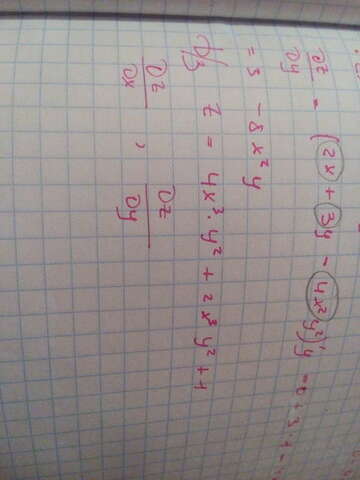 ∂z/∂y = (2x + 3y - 4x²y²)'y = 0 + 3 · 1 -
= 3 - 8x²y
z = 4x³ · y² + 2x³y² + 1
∂z/∂x , ∂z/∂y